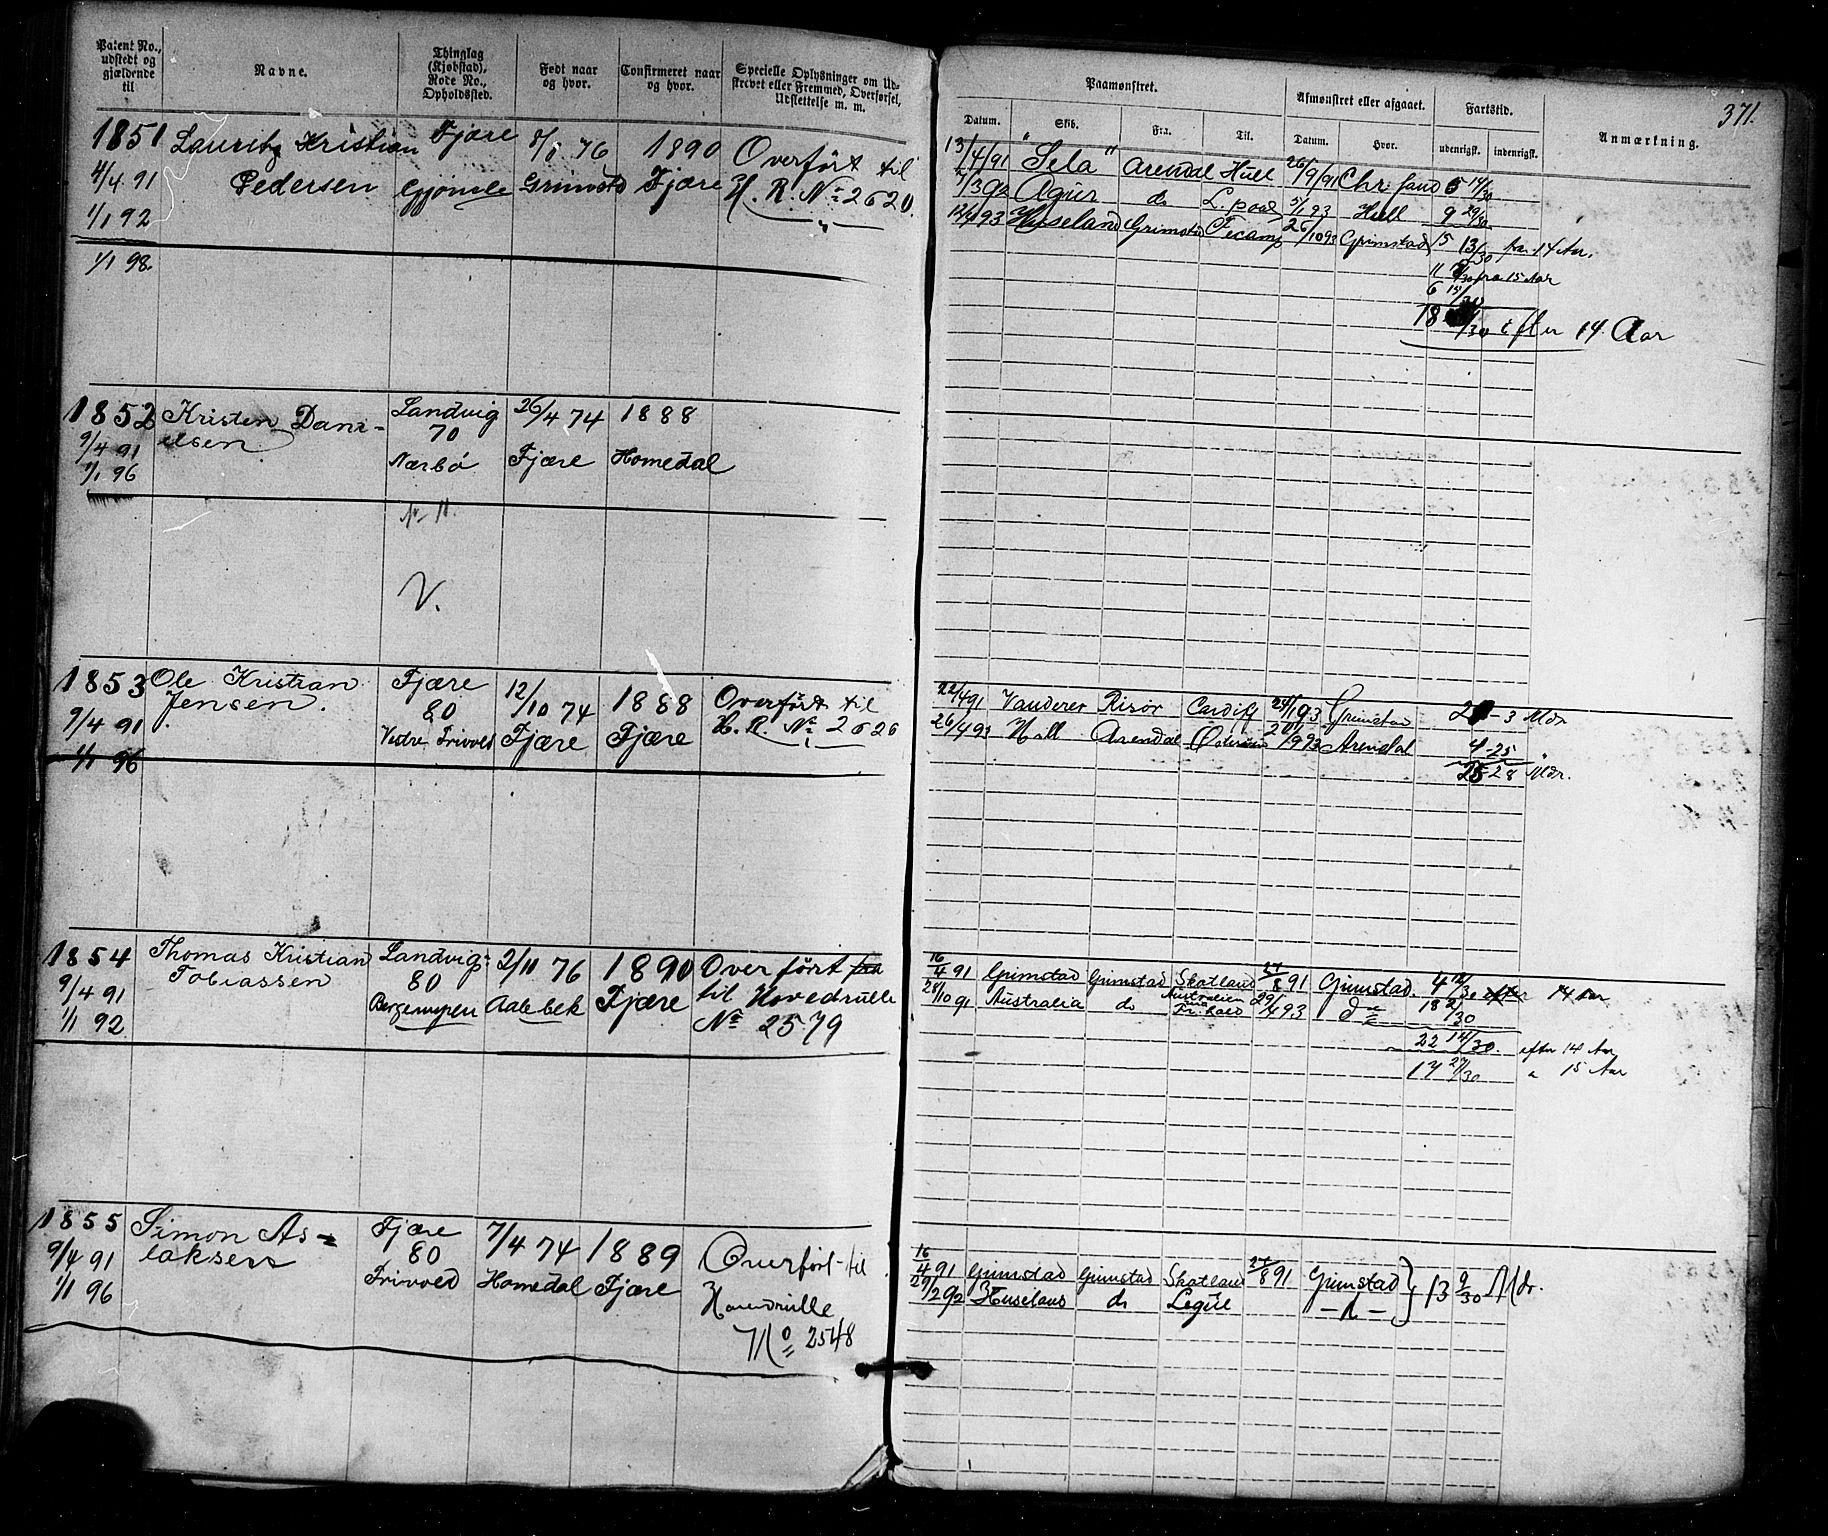 Patent No., udstedt og gjældende til
Navne.
Thinglag (Kjøbstad), Rode No., Opholdssted.
Født naar og hvor.
Confirmeret naar og hvor.
Specielle Oplysninger om Udskrevet eller Fremmed, Overførsel, Udslettelse m. m.
Paamønstret.
Afmønstret eller afgaaet.
Fartstid.
Anmærkning.
371.
Datum. Skib. Fra. Til. Datum. Hvor. udenrigsk. indenrigsk.
1851 Lauritz Kristian Fjære 76 1890 Overført til
4/4 91 Pedersen Gjømle Grimstd Fjære H. R. No 2620.
1/1 92
1/1 98.
13/4 91 "Sela" Arendal Hull 26/9 91 Chr.sand 5 14/30
92 Agur do L.pool 5/1 93 Hull 9 29/30
93 Huseland Grimstd Fecamp 26/10 93 Grimstad 15 13/30 fra 14 Aar.
11 fra 15 Aar
6 15/30
18 /30 efter 14 Aar
1852 Kristen Dani- Landvig 26/4 74 1888
elsen 70
9/4 91
1/1 96 Nærbö Fjære Homedal
N- 11.
V.
1853 Ole Kristian Fjære 12/10 74 1888 Overført til
Jensen. 80 H. R. No 2626
9/4 91 Vestre Trivold Fjære Fjære
1/1 96
22/4 91 Vanderer Risör Cardiff 24/1 93 Grimstad 21-3 Mdr
26/4 93 Hull Arendal 20/9 93 Arendal 4 25 "
25 28 Mdr.
1854 Thomas Kristian Landvig 2/11 76 1890 Overført fra
Tobiassen 80 til Hovedrulle
9/4 91 Aalebek Fjære No 2579
1/1 92
16/4 91 Grimstad Grimstad Skotland 27/8 91 Grimstad. 4 12/30 efter 14 Aar
28/10 91 Australia do Australien 29/4 93 do 18 2/30
22 14/30. efter 14 Aar
17 27/30 " 15 Aar
1855 Simon As- Fjære 7/4 74 1889 Overført til
laksen 80 Hovedrulle
9/4 91 Trivold Homedal Fjære No 2548
1/1 96
16/4 91 Grimstad Grimstad Skotland 27/8 91 Grimstad } 13 9/30 Mdr.
29/2 92 Huseland do